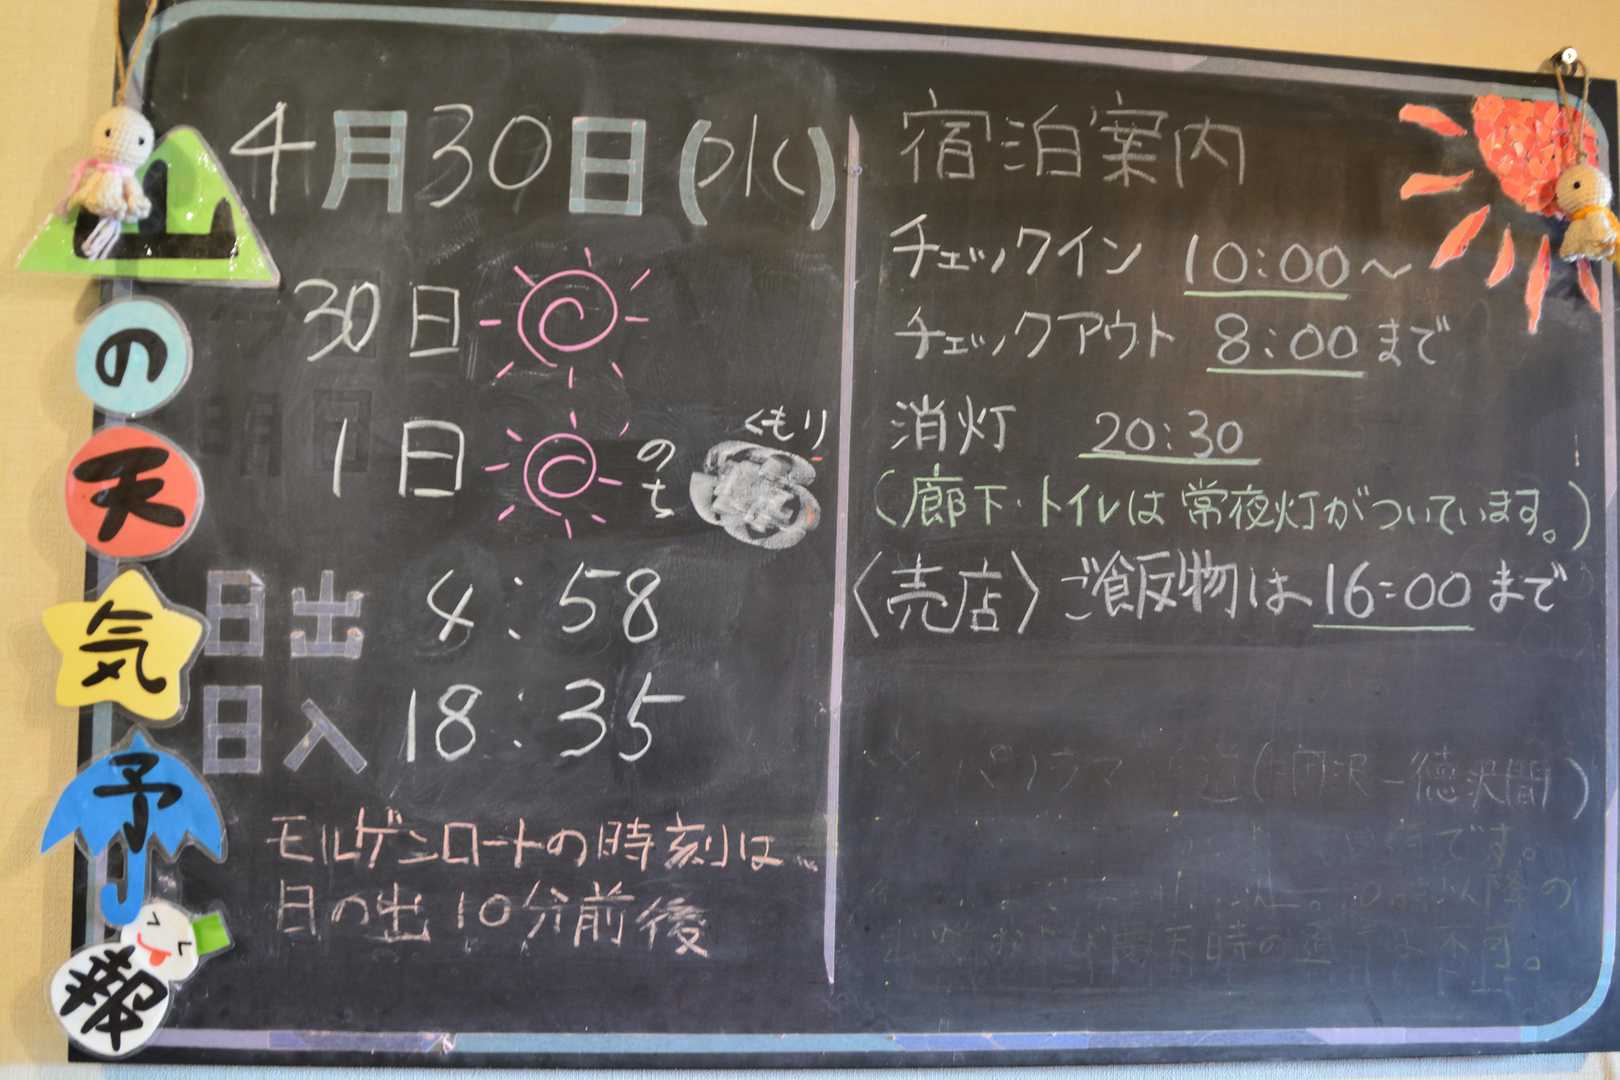 山の天気予報
4月30日(水)
30日
1日 のち くもり
日出 4:58
日入 18:35
モルゲンロートの時刻は
日の出10分前後
宿泊案内
チェックイン 10:00〜
チェックアウト 8:00まで
消灯 20:30
(廊下・トイレは常夜灯がついています。)
〈売店〉ご飯物は16:00まで
パノラマ
徳沢間)
です。
以降の
時の
不可。